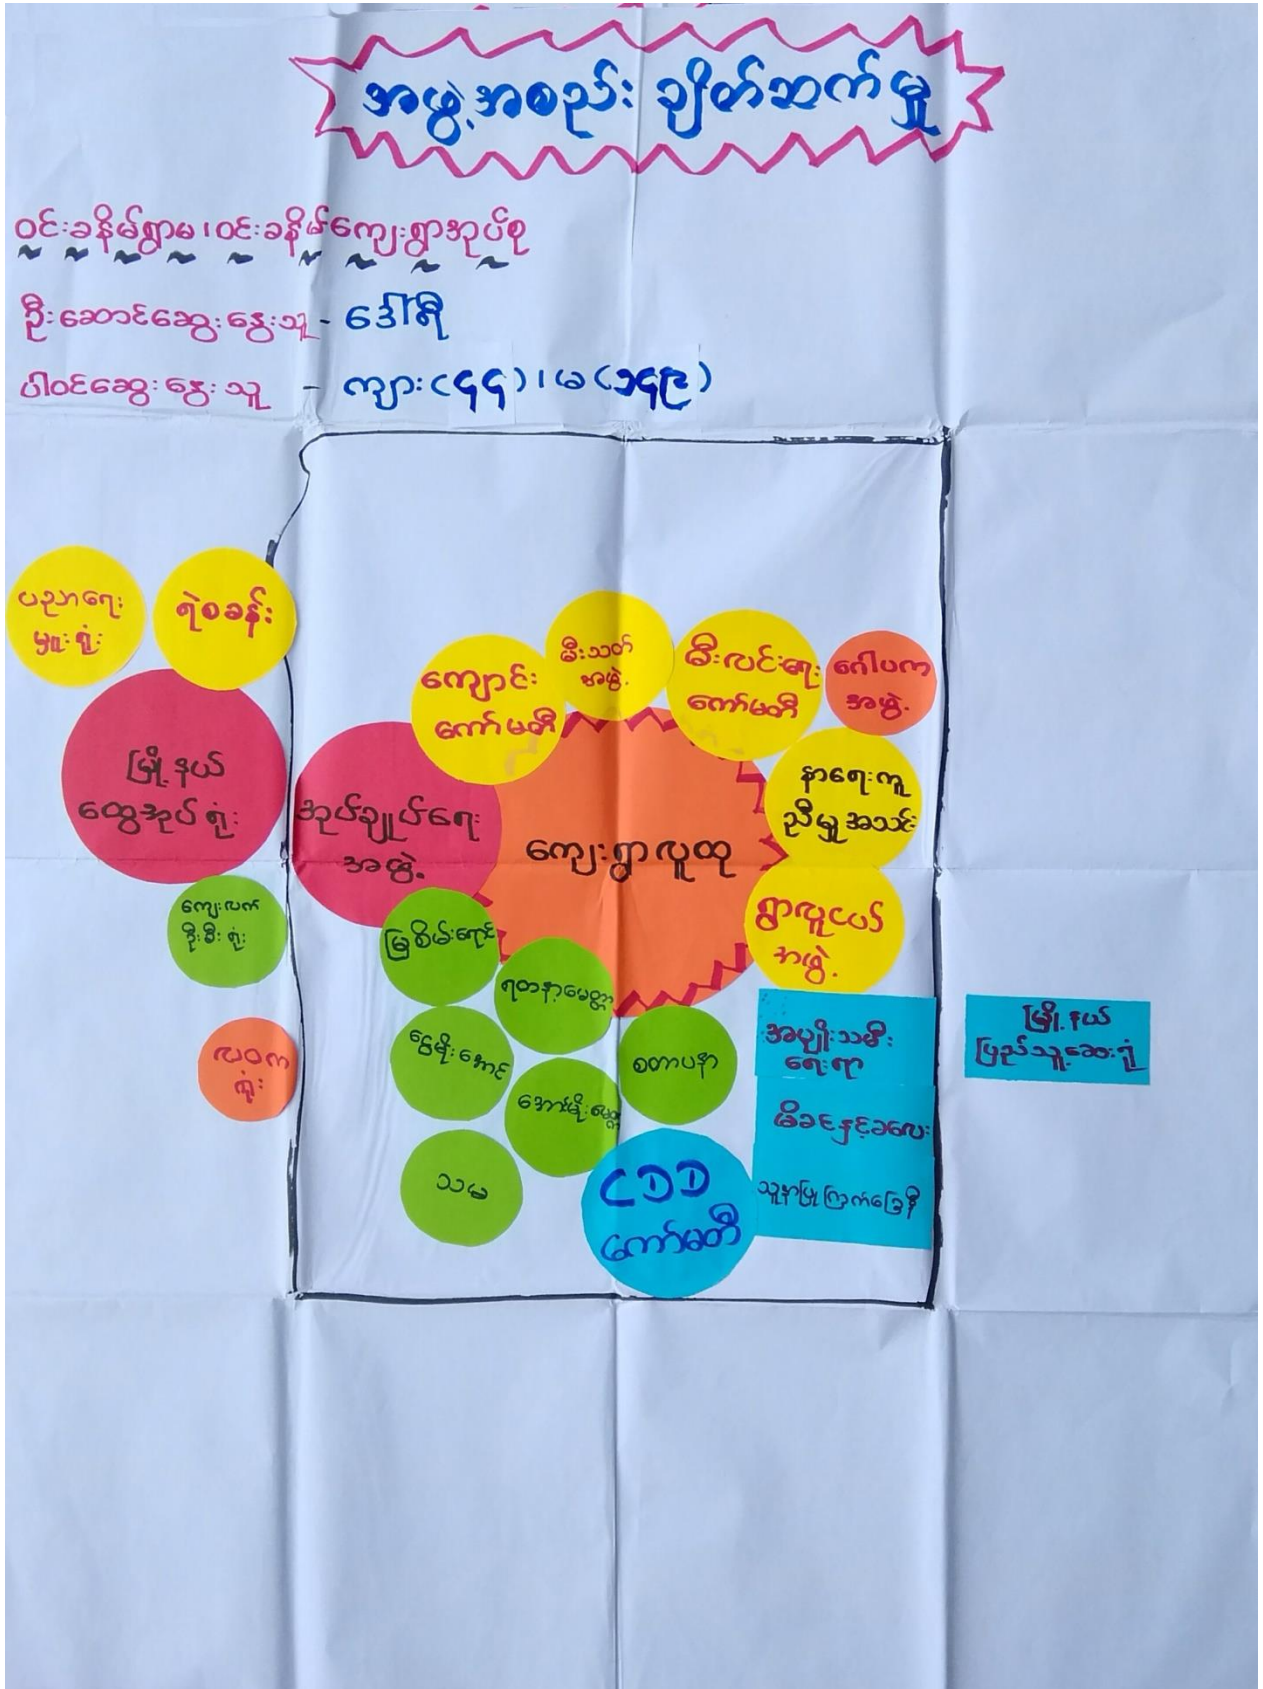 အဖွဲ့အစည်း ချိတ်ဆက်မှု
ဝင်းခနိမ်ရွာမ၊ ဝင်းခနိမ်ကျေးရွာအုပ်စု
ဦးဆောင်ဆွေးနွေးသူ - ဒေါ်ရီ
ပါဝင်ဆွေးနွေးသူ - ကျား(၄၄)၊ မ(၁၄၉)
ပညာရေး
မှူးရုံး
ရဲစခန်း
မြို့နယ်
ထွေအုပ်ရုံး
ကျေးလက်
ဦးစီးရုံး
လဝက
ရုံး
ကျောင်း
ကော်မတီ
မီးသတ်
အဖွဲ့
မီးလင်းရေး
ကော်မတီ
ဂေါပက
အဖွဲ့
နာရေးကူ
ညီမှုအသင်း
အုပ်ချုပ်ရေး
အဖွဲ့
ကျေးရွာလူထု
ရွာလူငယ်
အဖွဲ့
မြစိမ်းရောင်
ရတနာ့မေတ္တာ
ငွေမိုးအောင်
အောင်မိုးမေတ္တာ
စတာပနာ
သမ
CDD
ကော်မတီ
အမျိုးသမီး
ရေးရာ
မိခင်နှင့်ခလေး
သူနာပြုကြက်ခြေနီ
မြို့နယ်
ပြည်သူ့ဆေးရုံ